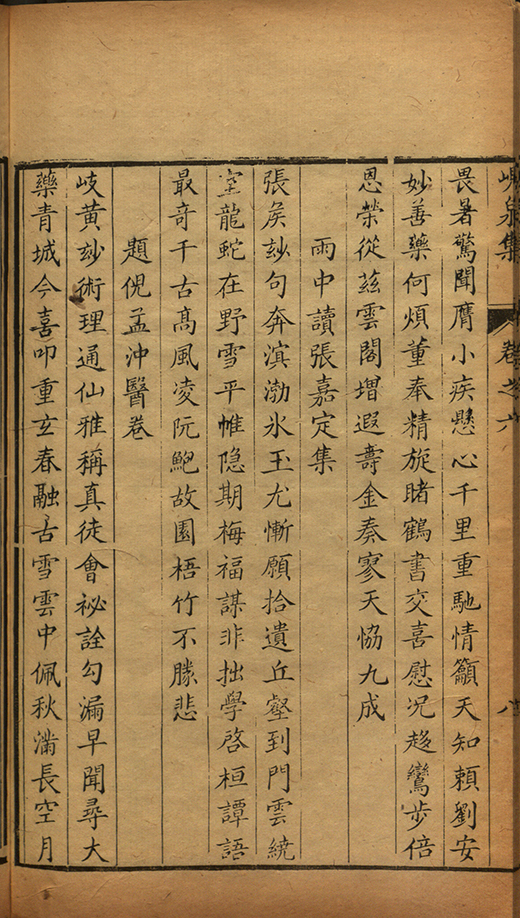 峴泉集 卷之六 八
畏暑驚聞膺小疾懸心千里重馳情籲天知賴劉安
妙善藥何煩董奉精旋睹鶴書交喜慰况趍鸞步倍
恩榮從茲雲閣增遐壽金奏寥天協九成
雨中讀張嘉定集
張矦玅句奔滇渤氷玉尤慚願拾遺丘壑到門雲繞
室龍蛇在野雪平帷隐期梅福謀非拙學啓桓譚語
最竒千古髙風凌阮鮑故園梧竹不勝悲
題倪孟沖醫卷
岐黄玅術理通仙雅稱真徒會祕詮勾漏早聞尋大
藥青城今喜叩重玄春融古雪雲中佩秋滿長空月